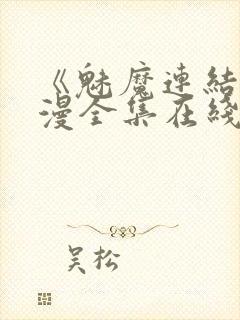 《魅魔連結
漫全集在綫
吴松